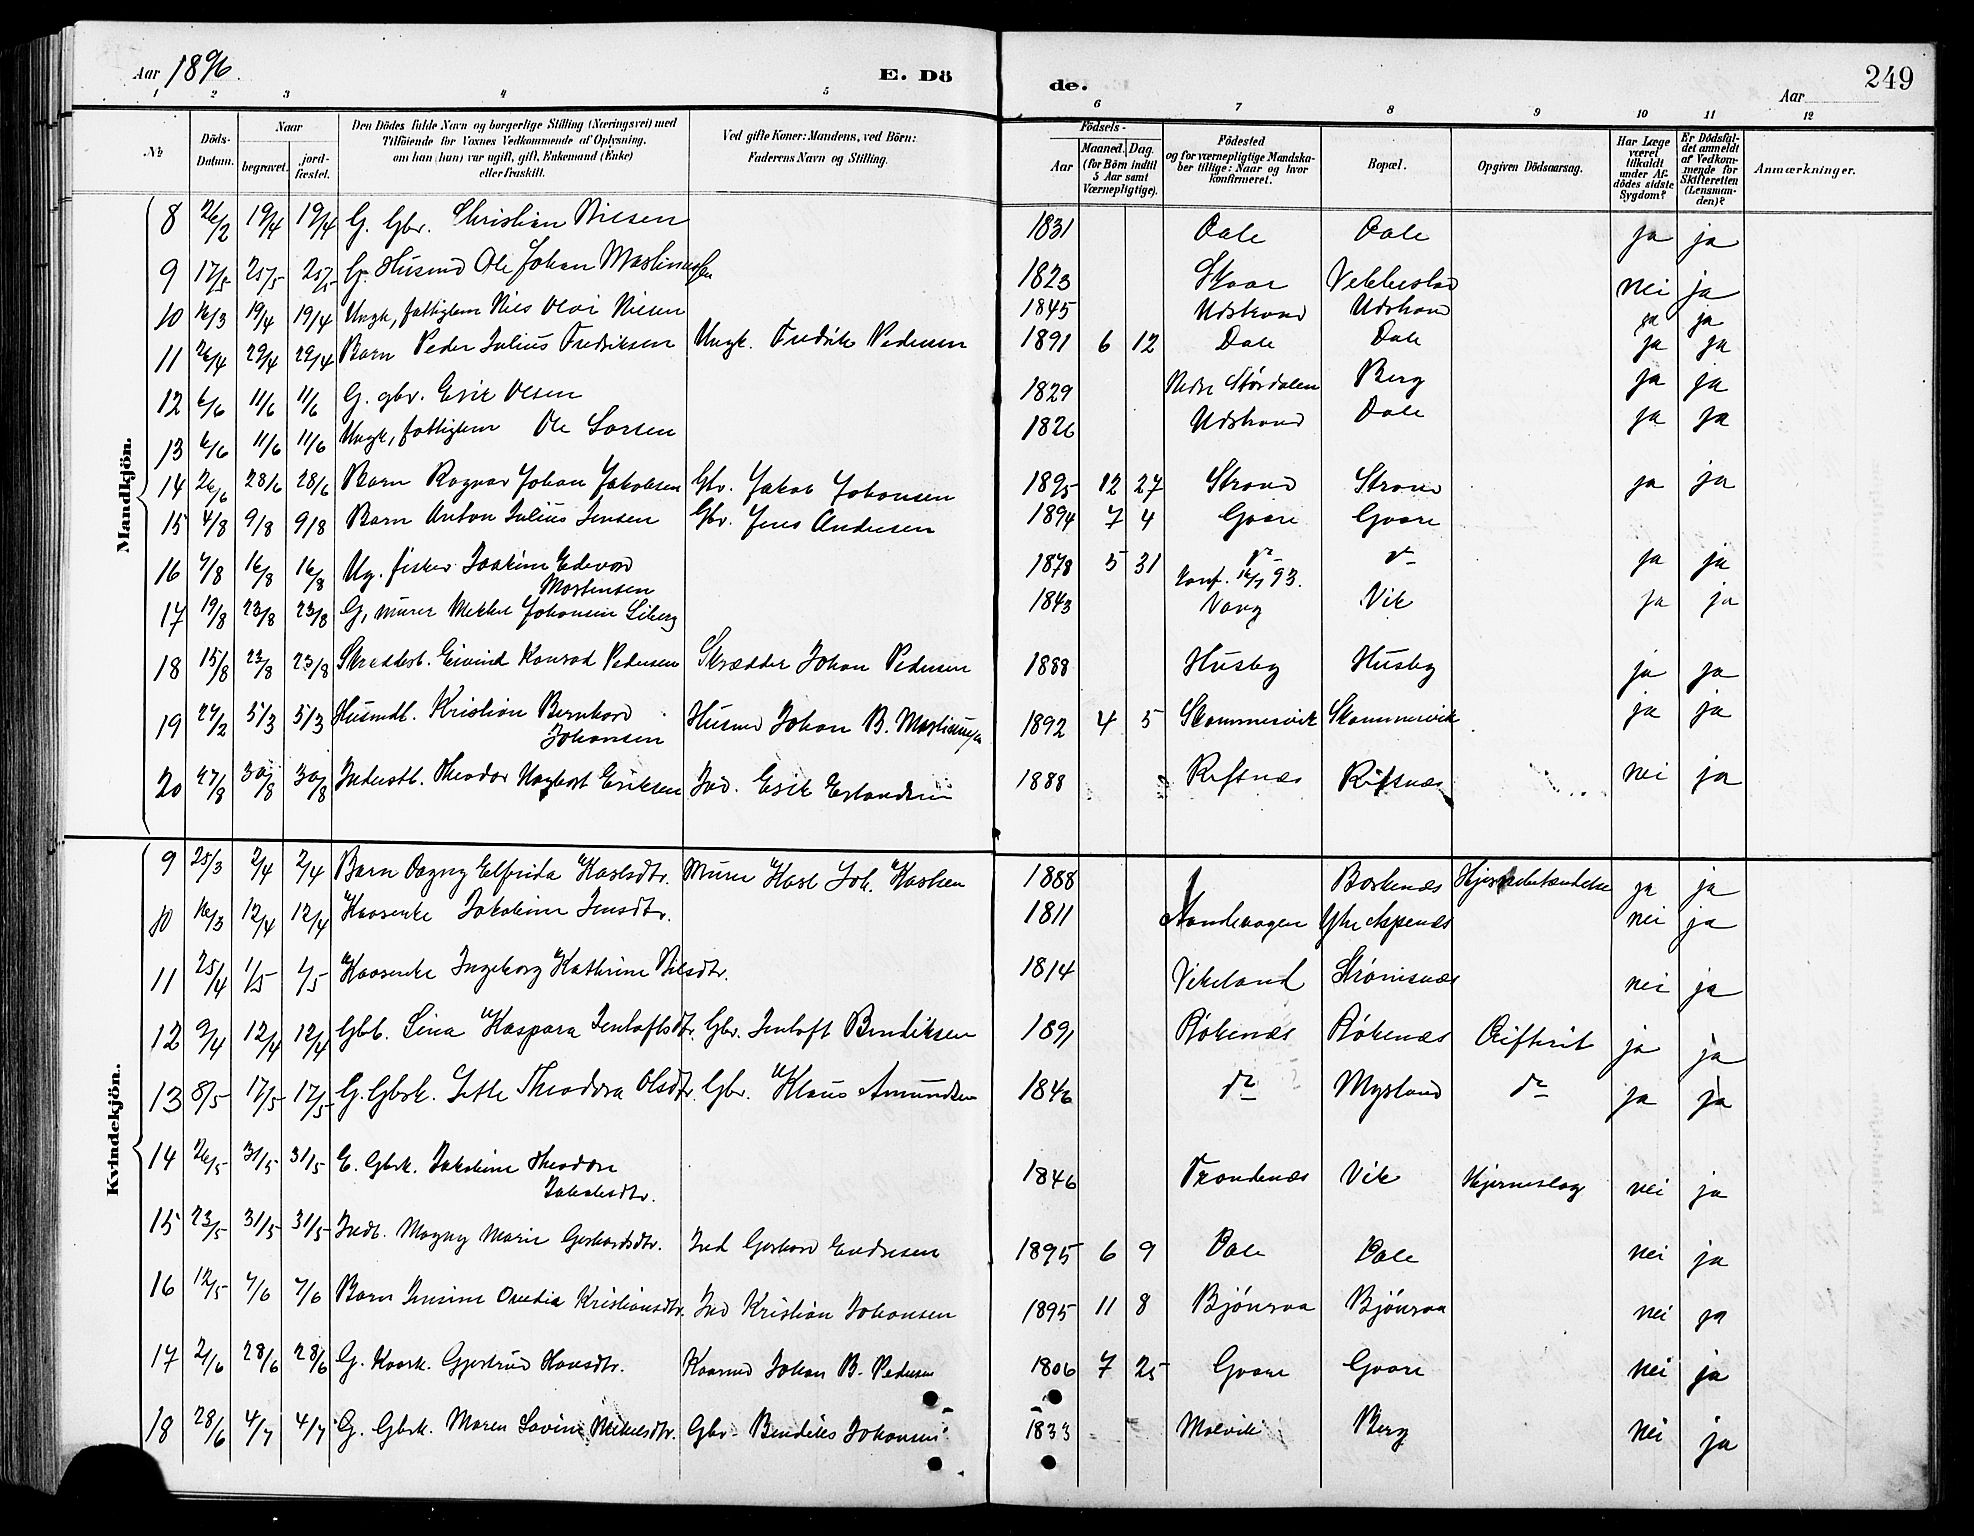 Aar 1896.
E. Döde.
Aar
249
1 2 3 4 5 6 7 8 9 10 11 12
№
Döds-Datum.
Naar
begravet.
jord-fæstet.
Den Dödes fulde Navn og borgerlige Stilling (Næringsvei) med Tilföiende for Voxnes Vedkommende af Oplysning, om han (hun) var ugift, gift, Enkemand (Enke) eller fraskilt.
Ved gifte Koner: Mandens, ved Börn: Faderens Navn og Stilling.
Födsels-
Aar
Maaned. Dag.
(for Börn indtil 5 Aar samt Værnepligtige).
Födested og for værnepligtige Mandskaber tillige: Naar og hvor konfirmeret.
Bopæl.
Opgiven Dödsaarsag.
Har Læge været tilkaldt under Afdödes sidste Sygdom?
Er Dödsfaldet anmeldt af Vedkommende for Skifteretten (Lensmanden)?
Anmærkninger.
Mandkjön.
8 26/2 19/4 19/4 G. Gbr. Christian Nilsen 1831 Dale Dale ja ja
9 17/5 25/5 25/5 G. Husmd Ole Johan Martinussen 1823 Skaar nei ja
10 16/3 19/4 19/4 Ungk, fattiglem Nils Olai Nilsen 1845 Udstrand Udstrand ja ja
11 26/4 29/4 29/4 Barn Peder Julius Fredriksen Ungk. Fredrik Pedersen 1891 6 12 Dale Dale ja ja
12 6/6 11/6 11/6 G. gbr. Erik Olsen 1829 Nedre Stördalen Berg ja ja
13 6/6 11/6 11/6 Ungk, fattiglem Ole Larsen 1826 Udstrand Dale ja ja
14 26/6 28/6 28/6 Barn Ragnar Johan Jakobsen Gbr. Jakob Johansen 1895 12 27 Strand Strand ja ja
15 4/8 9/8 9/8 Barn Anton Julius Jensen Gbr. Jens Andersen 1894 7 4 Gvare Gvare
16 7/8 16/8 16/8 Ug. fisker Joakim Edevard Mortensen 1878 5 31 do Konf. 16/7 93. do ja ja
17 19/8 23/8 23/8 G, murer Mikkel Johansen Liberg 1843 Vang Vik ja ja
18 15/8 23/8 23/8 Skrædderb. Eivind Konrad Pedersen Skrædder Johan Pedersen 1888 Husby Husby ja ja
19 27/2 5/3 5/3 Husmdb. Kristian Bernhard Johansen Husmd Johan B. Martinussen 1892 4 5 Skammesvik Skammesvik ja ja
20 27/8 30/8 30/8 Inderstb. Theodor Ungbart Eriksen Ind. Erik Erlandsen 1888 Riftnæs Riftnæs nei ja
Kvindekjön.
9 25/3 2/4 2/4 Barn Dagny Elfrida Karlsdtr. Murer Karl Joh. Karlsen 1888 Borkenæs Hjernebetændelse ja ja
10 16/3 12/4 12/4 Kaarenke Jakobine Jensdtr. 1811 Sandevagen Ytre Aspenæs nei ja
11 25/4 1/5 1/5 Kaarenke Ingeborg Kathrine Nilsdtr. 1814 Vikeland Strömsnæs nei ja
12 9/4 12/4 12/4 Gbb. Lina Kaspara Jentoftsdtr. Gbr. Jentoft Bendiksen 1891 Rökenæs Rökenæs Difterit ja ja
13 8/5 17/5 17/5 G. Gbrk. Jette Theodora Olsdtr. Gbr. Klaus Amundsen 1846 do Mysland do ja ja
14 26/5 31/5 31/5 E. Gbrk. Jakobine Theodore Jakobsdtr. 1846 Trondenæs Vik Hjerneslag nei ja
15 23/5 31/5 31/5 Indb. Magny Marie Gerhardsdtr. Ind Gerhard Endresen 1895 6 9 Dale Dale nei ja
16 12/5 7/6 7/6 Barn Jensine Ovedia Kristiansdtr. Ind Kristian Johansen 1895 11 8 Bjönraa Bjönraa nei ja
17 2/6 28/6 28/6 G. Kaark. Gjertrud Hansdtr. Kaarmd Johan B. Pedersen 1806 7 25 Gvare Gvare nei ja
18 28/6 4/7 4/7 G. Gbrk. Maren Lovine Mikkelsdtr. Gbr. Bendiks Johansen 1833 Malvik Berg nei ja